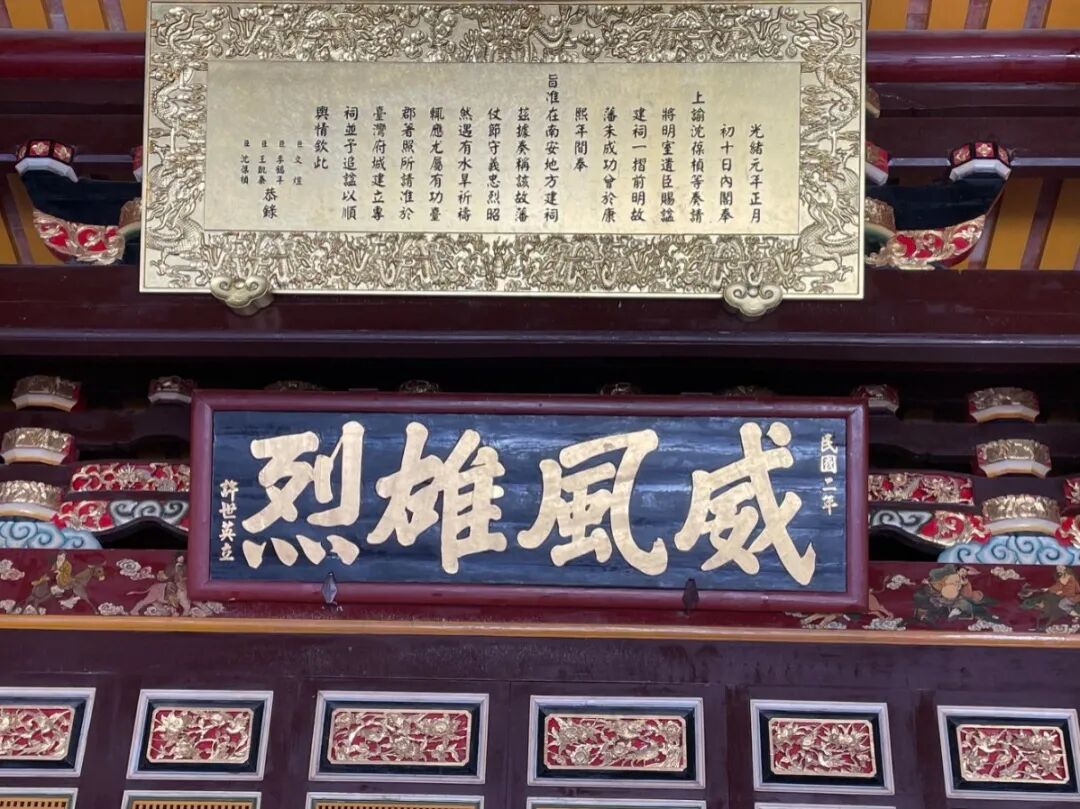 光緒元年正月
初十日內閣奉
上諭沈葆楨等奏請
將明室遺臣賜諡
建祠一摺前明故
藩朱成功曾於康
熙年間奉
旨准在南安地方建祠
茲據奏稱該故藩
仗節守義忠烈昭
然遇有水旱祈禱
輒應尤屬有功臺
郡著照所請准於
臺灣府城建立專
祠並予追諡以順
輿情欽此
臣文煜
臣李鶴年
臣王凱泰
臣沈葆楨
恭錄
民國二年
威風雄烈
許世英立